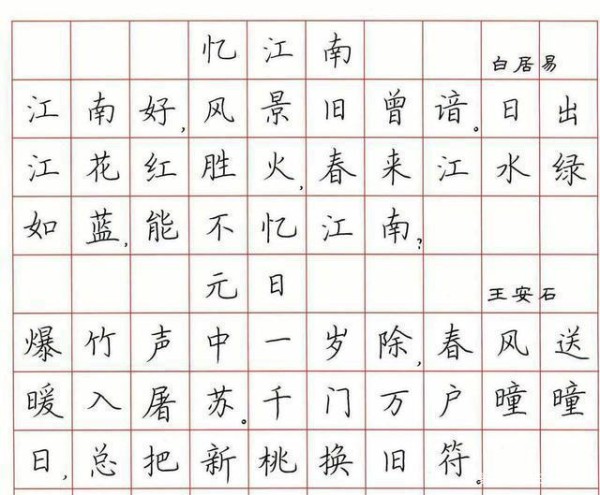 忆江南 白居易
江南好,风景旧曾谙。日出
江花红胜火,春来江水绿
如蓝,能不忆江南?
元日 王安石
爆竹声中一岁除,春风送
暖入屠苏。千门万户曈曈
日,总把新桃换旧符。